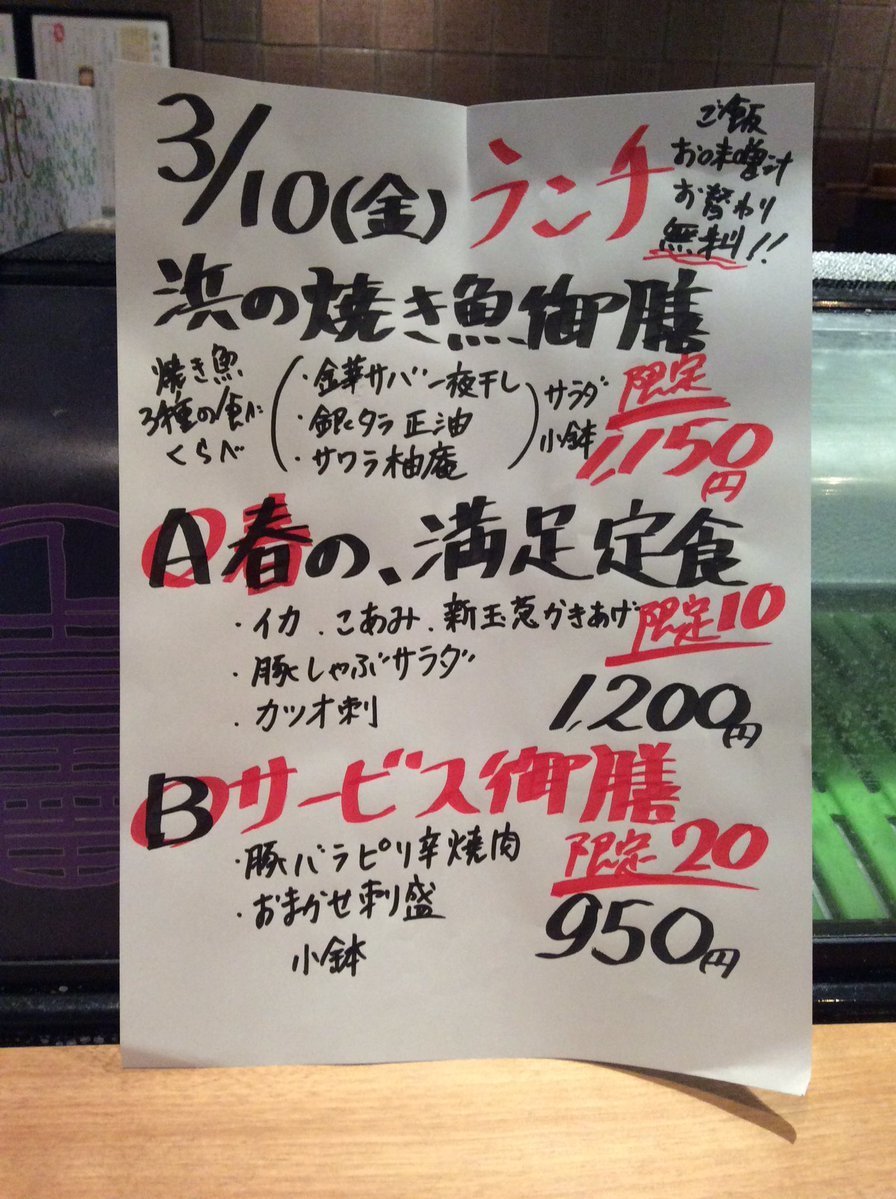 3/10(金) ランチ
ご飯
お味噌汁
お替わり
無料!!
浜の焼き魚御膳
焼き魚
3種の食べ
くらべ
・金華サバ一夜干し
・銀ダラ正油
・サワラ柚庵
サラダ
小鉢
限定
1,150円
A春の、満足定食
・イカ、こあみ、新玉葱かきあげ
・豚しゃぶサラダ
・カツオ刺
限定10
1,200円
Bサービス御膳
・豚バラピリ辛焼肉
・おまかせ刺盛
小鉢
限定20
950円